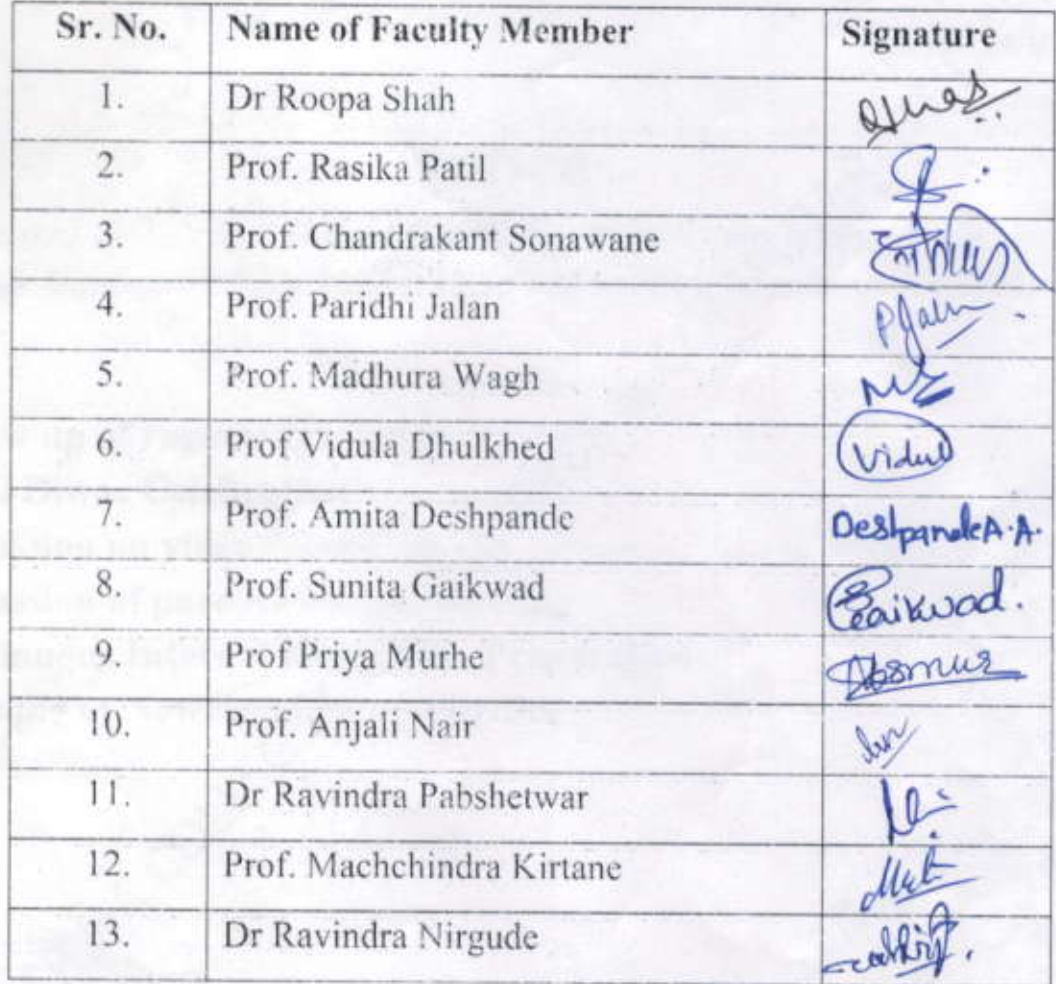 Sr. No. Name of Faculty Member Signature
1. Dr Roopa Shah
2. Prof. Rasika Patil
3. Prof. Chandrakant Sonawane
4. Prof. Paridhi Jalan PJalan
5. Prof. Madhura Wagh
6. Prof Vidula Dhulkhed Vidul
7. Prof. Amita Deshpande Deshpande A.A.
8. Prof. Sunita Gaikwad Gaikwad.
9. Prof Priya Murhe
10. Prof. Anjali Nair
11. Dr Ravindra Pabshetwar
12. Prof. Machchindra Kirtane
13. Dr Ravindra Nirgude